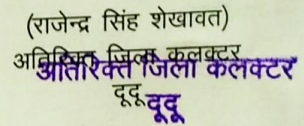 (राजेन्द्र सिंह शेखावत)
अतिरिक्त जिला कलक्टर
अतिरिक्त जिला कलक्टर
दूदू
दूदू